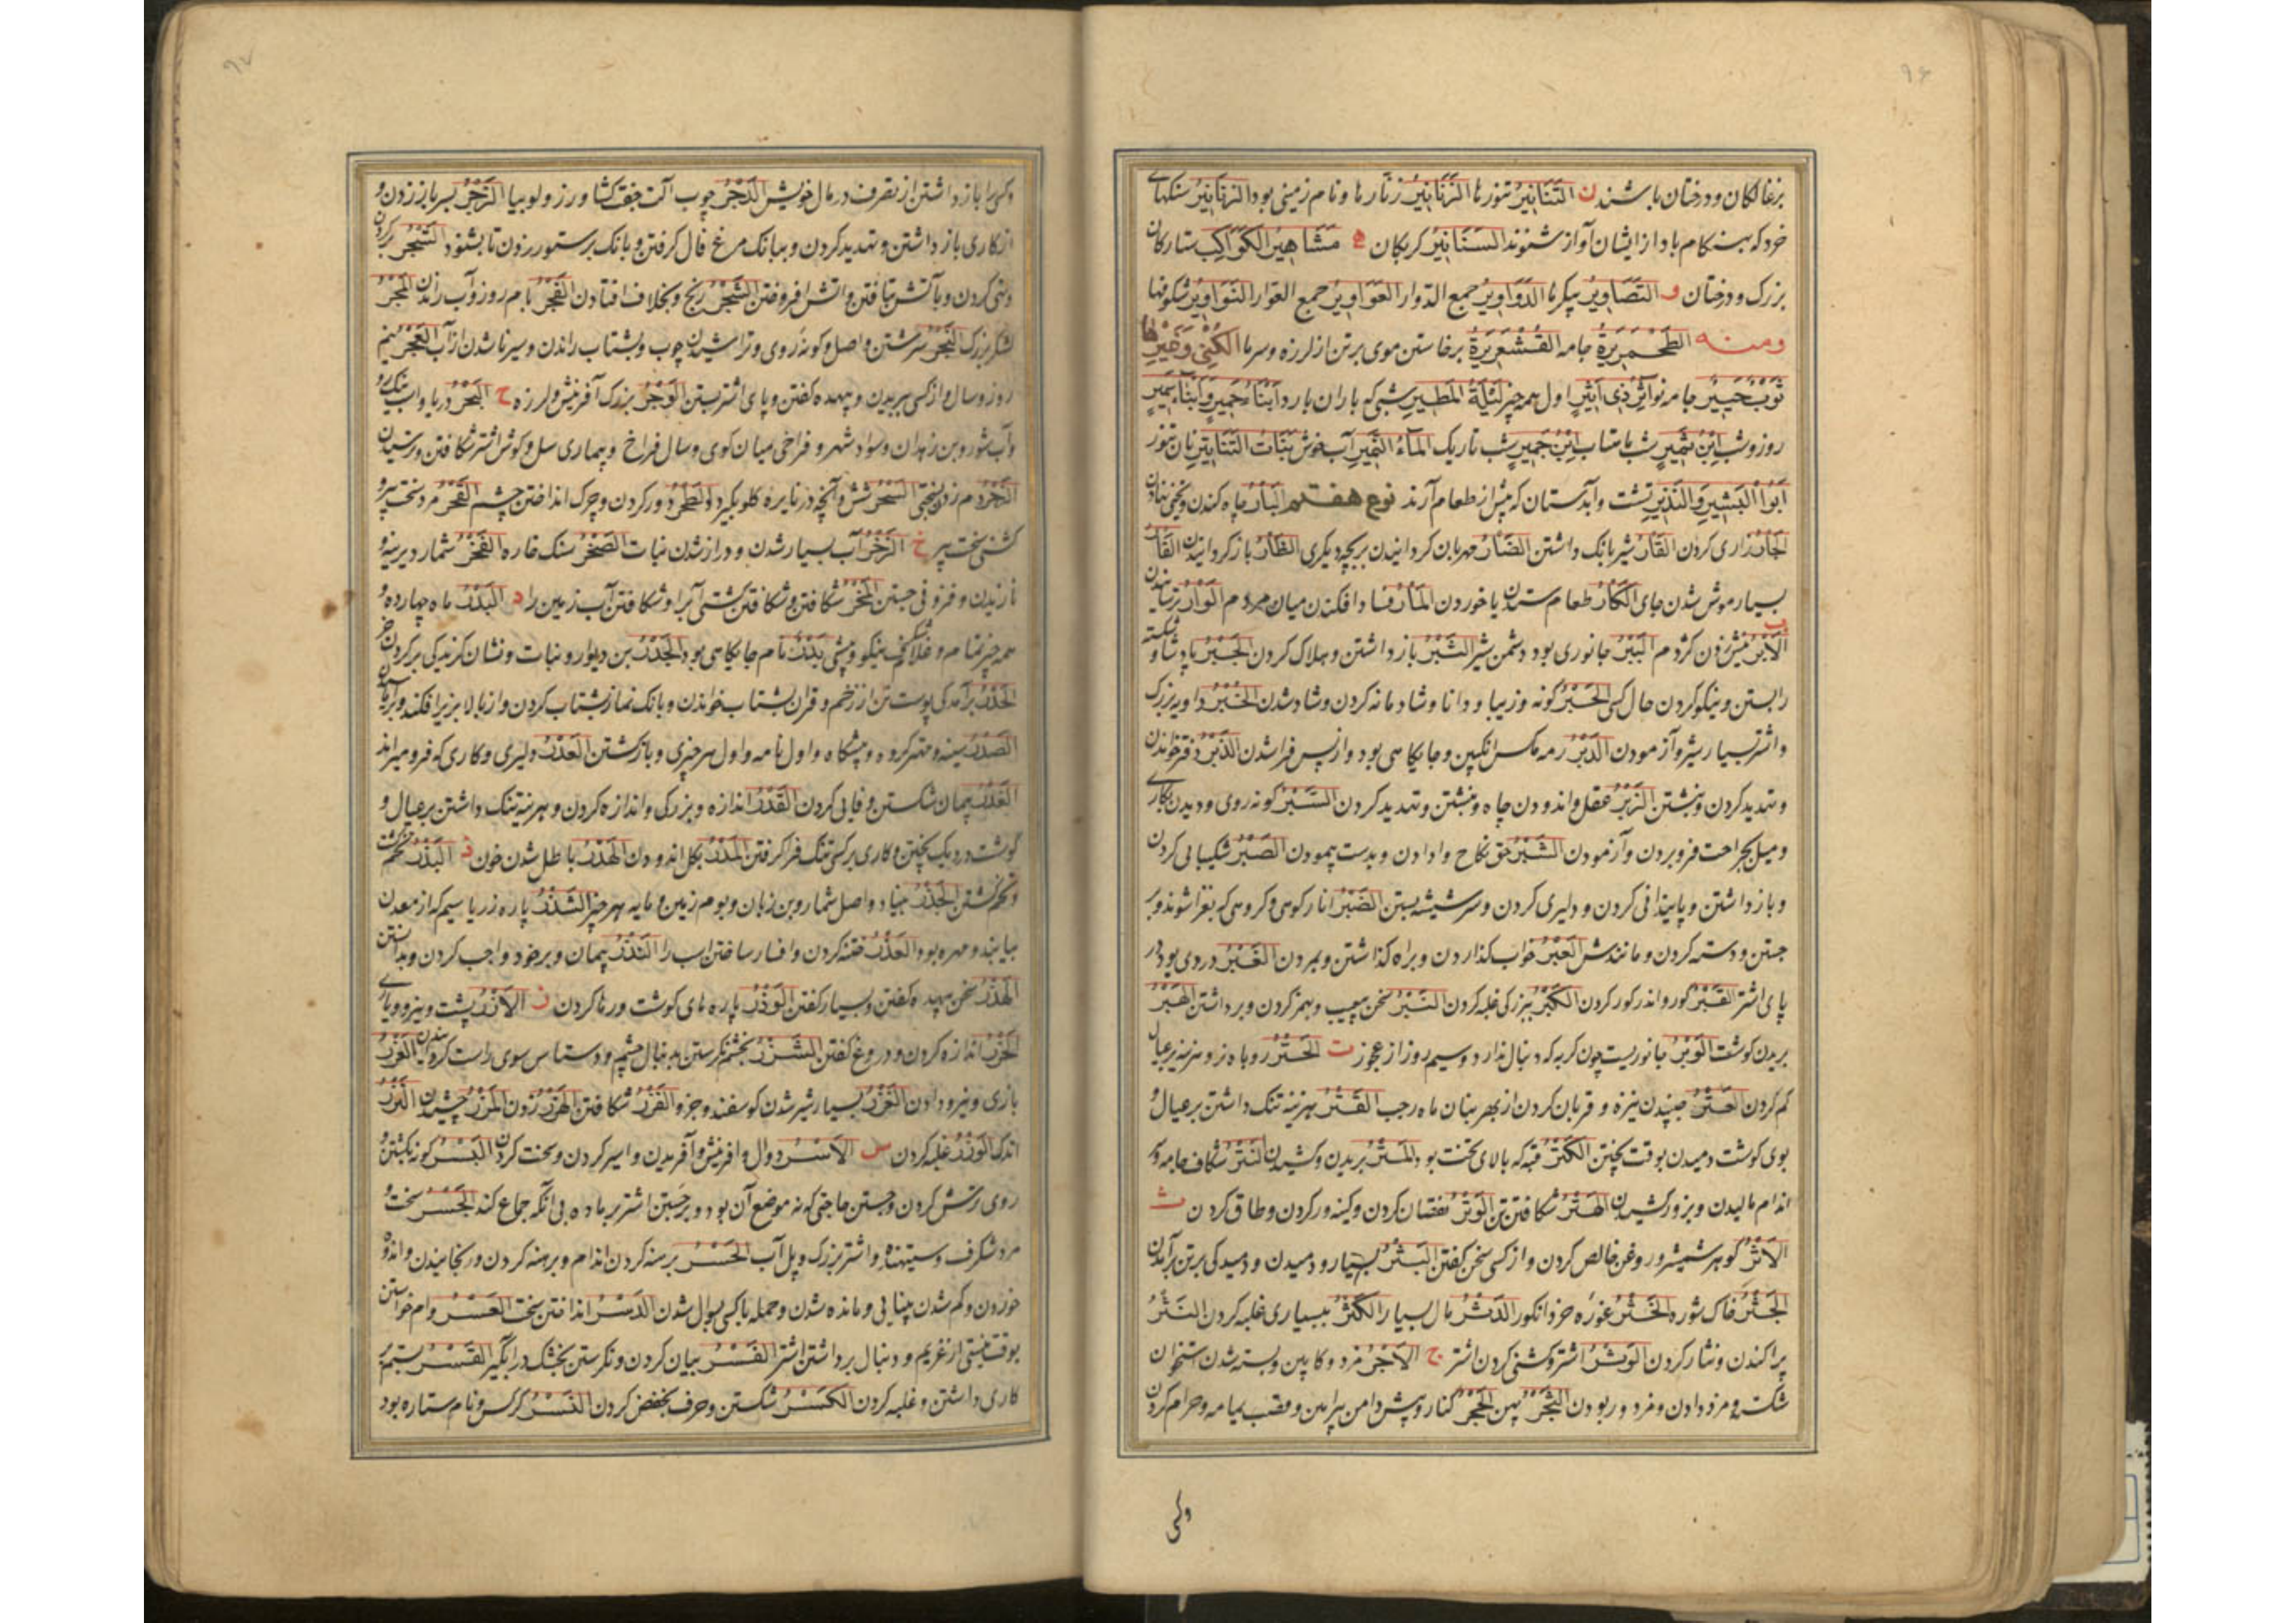 ۹۶
بزغالگان و درختان باشند ن التَّنَانِيرُ تنورها الزَّنَانِيرُ زنارها و نام زمینی بود الزَّنَانِيرُ سنکهای
خرد که بهنکام باد از ایشان آواز شنوند السَّنَانِيرُ کربکان ه مَشَاهِيرُ الكَوَاكِبِ ستارکان
بزرک و درخشان و التَّصَاوِيرُ پیکرها الدَّوَاوِيرُ جمع الدوار العَوَاوِيرُ جمع العوّار النَّوَاوِيرُ شکوفها
ومنه الطَّحْمَرِيرَةُ جامه القُشَعْرِيرَةُ برخاستن موی بر تن از لرزه و سرما الكُنَى وَغَيْرها
ثَوْبٌ حَبِيرٌ جامه نو آثِرُ ذِي أثِيرٍ اول همه چیز لَيْلَةُ المَطِيرِ شبی که باران بارد ابْنَاءُ جَمِيرٍ وَابْنَاءُ سَمِيرٍ
روز و شب ابْنُ ثَمِيرٍ شب ماهتاب ابْنُ جَمِيرٍ شب تاریک المَاءُ النَّمِيرُ آب خوش بَنَاتُ التَّنَانِيرِ نان تنور
أبُوا البَشِيرِ وَالنَّذِيرِ تشت و آبدستان که پیش از طعام آرند نوع هفتم البَأْرُ چاه کندن و پنهان نهادن
الجَأْرُ زاری کردن القَأْرُ شیر بانک داشتن الضَّأْرُ مهربان کردانیدن بر بچه دیکری الظَّأْرُ باز کردانیدن الفَأْرُ
بسیار موش شدن جای الكَأْرُ طعام ستدن یا خوردن المَأْرُ فساد افکندن میان مردم الوَأْرُ ترسانیدن
ب الأَبْرُ نیش زدن کژدم البَبْرُ جانوری بود دشمن شیر الثَّبْرُ باز داشتن و هلاک کردن الجَبْرُ پادشا و شکسته
را بستن و نیکو کردن حال کسی الحَبْرُ کونه و زیبا و دانا و شادمانه کردن و شاد شدن الخَبْرُ داویه بزرک
و اشتر بسیار شیر و آزمودن الدَّبْرُ رمه مکس انکبین و جایکاهی بود و از پس فرا شدن الذَّبْرُ دفتر خواندن
و تهدید کردن و نبشتن الزَّبْرُ عقل و اندودن چاه و نبشتن و تهدید کردن السَّبْرُ کونه روی و دیدن بکاری
و میل بجراحت فرو بردن و آزمودن الشَّبْرُ حق نکاح و دادن و بدست پیمودن الصَّبْرُ شکیبایی کردن
و باز داشتن و پایندانی کردن و دلیری کردن و سر شیشه بستن الضَّبْرُ انار کوهی و کروهی که بغزا شوند و بر
جستن و دسته کردن و مانندش العَبْرُ خواب کذاردن و براه کذاشتن و بمردن الغَبْرُ دردی بود در
پای اشتر القَبْرُ کور و اندر کور کردن الكَبْرُ ببزرکی غلبه کردن النَّبْرُ سخن بعیب و بهمز کردن و برداشتن الهَبْرُ
بریدن کوشت الوَبْرُ جانوریست چون کربه که دنبال ندارد و سیم روز از عجوز ت الخَتْرُ روباه نر و هزینه بر عیال
کم کردن العَتْرُ جنبیدن نیزه و قربان کردن از بهر بتان ماه رجب القَتْرُ هزینه تنک داشتن بر عیال و
بوی کوشت دمیدن بوقت پختن الكَتْرُ قبه که بالای تخت بود المَتْرُ بریدن و کشیدن النَّتْرُ شکاف جامه و
اندام مالیدن و بزور کشیدن الهَتْرُ شکافتن تن الوَتْرُ نقصان کردن و کینه ور کردن و طاق کردن ث
الأَثْرُ کوهر شمشیر و روغن خالص کردن و از کسی سخن کفتن البَثْرُ بسیار و دمیدن و دمیدکی بر تن برآمدن
الجَثْرُ خاک شوره الخَثْرُ غوره خرد انکور الدَّثْرُ مال بسیار الكَثْرُ ببسیاری غلبه کردن النَّثْرُ
پراکندن و نثار کردن الوَثْرُ اشتر و کشنی کردن اشتر ج الأَجْرُ مزد و کابین و بسته شدن استخوان
شکسته و مزد دادن و مزدور بودن الثَّجْرُ پهن الحَجْرُ کنار و پیش دامن پیراهن و قصب یمامه و حرام کردن
وکسی
۹۷
وکسی را باز داشتن از تصرف در مال خویش الدَّجْرُ چوب آلت جفت کشاورز و لوبیا الزَّجْرُ بسر باز زدن و
از کاری باز داشتن و تهدید کردن و ببانک مرغ فال کرفتن و بانک بر ستور زدن تا بشنود السَّجْرُ پر کردن
و تهی کردن و بآتش تافتن و آتش افروختن الشَّجْرُ رنج و بخلاف افتادن الفَجْرُ بام روز و آب راندن المَجْرُ
لشکر بزرک النَّجْرُ سرشتن و اصل و کونه روی و تراشیدن چوب و بشتاب راندن و سیر ناشدن از آب الهَجْرُ نیم
روز و سال و از کسی بریدن و بیهده کفتن و پای اشتر بستن الوَجْرُ بزرک آفرینش و لرزه ح البَحْرُ دریا و اسب نیک رو
و آب شور و بن زهدان و سواد شهر و فراخی میان کوی و سال فراخ و بیماری سل و کوش اشتر شکافتن و ترسیدن
الزَّحْرُ دم زدن بسختی السَّحْرُ شش و آنچه در نایره کلو بکیرد الطَّحْرُ دور کردن و چرک انداختن چشم القَحْرُ مرد سخت پیر و
کشنی سخت پیر خ الزَّخْرُ آب بسیار شدن و دراز شدن نبات الصَّخْرُ سنک خاره الفَخْرُ شمار دیرینه و
نازیدن و فزونی جستن المَخْرُ شکافتن و شکافتن کشتی آب را و شکافتن آب زمین را د البَدْرُ ماه چهارده و
همه چیز تمام و غلامکی نیکو و پیشی بَدْرُ نام جایکاهی بود الجَدْرُ بن دیوار و نبات و نشان کزندکی بر کردن خر
الحَدْرُ برآمدکی پوست تن از زخم و قرآن بشتاب خواندن و بانک نماز بشتاب کردن و از بالا بزیر افکندن و برآماسیدن
الصَّدْرُ سینه و مهتر کروه و پیشکاه و اول نامه و اول هر چیزی و باز کشتن العَدْرُ دلیری و کاری که فرو میراند
الغَدْرُ پیمان شکستن و فایی کردن القَدْرُ اندازه و بزرکی و اندازه کردن و هزینه تنک داشتن بر عیال و
کوشت در دیک پختن و کاری بر کسی تنک فرا کرفتن المَدْرُ بکل اندودن الهَدْرُ باطل شدن خون ذ البَذْرُ تخم
و تخم کشتن الجَذْرُ بنیاد و اصل شمار و بن زبان و بوم زمین و مایه هر چیز الشَّذْرُ پاره زر یا سیم که از معدن
بیابند و مهره بود العَذْرُ ختنه کردن و افسار ساختن اسب را النَّذْرُ پیمان و بر خود واجب کردن و بدانستن
الهَذْرُ سخن بیهده کفتن و بسیار کفتن الوَذْرُ پاره های کوشت و رها کردن ز الأَزْرُ پشت و نیرو و یاری
الحَزْرُ اندازه کردن و دروغ کفتن الشَّزْرُ بخشم نکرستن بدنبال چشم و دستاس سوی راست کردیدن العَزْرُ
بازی و نیرو دادن الغَزْرُ بسیار شیر شدن کوسفند و جز او الفَزْرُ شکافتن الهَزْرُ زدن المَزْرُ چشیدن النَّزْرُ
اندک الوَزْرُ غلبه کردن س الأَسْرُ دوال و آفرینش و آفریدن و اسیر کردن و سخت کردن البَسْرُ کونه بکشتن و
روی ترش کردن و جستن حاجتی که نه موضع آن بود و برجستن اشتر بر ماده بی آنکه جماع کند الجَسْرُ سخت و
مرد شکرف و ستیهنده و اشتر بزرک و پل آب الحَسْرُ برهنه کردن اندام و برهنه کردن و رنجانیدن و اندوه
خوردن و کم شدن بینایی و مانده شدن و حمله با کسی بول شدن الدَّسْرُ انداختن سخت العَسْرُ وام خواستن
بوقت نیستی از غریم و دنبال برداشتن اشتر الفَسْرُ بیان کردن و نکرستن بجشک در آبکیر القَسْرُ بستم
کاری داشتن و غلبه کردن الكَسْرُ شکستن و حرف بخفض کردن النَّسْرُ کرکس و نام ستاره بود